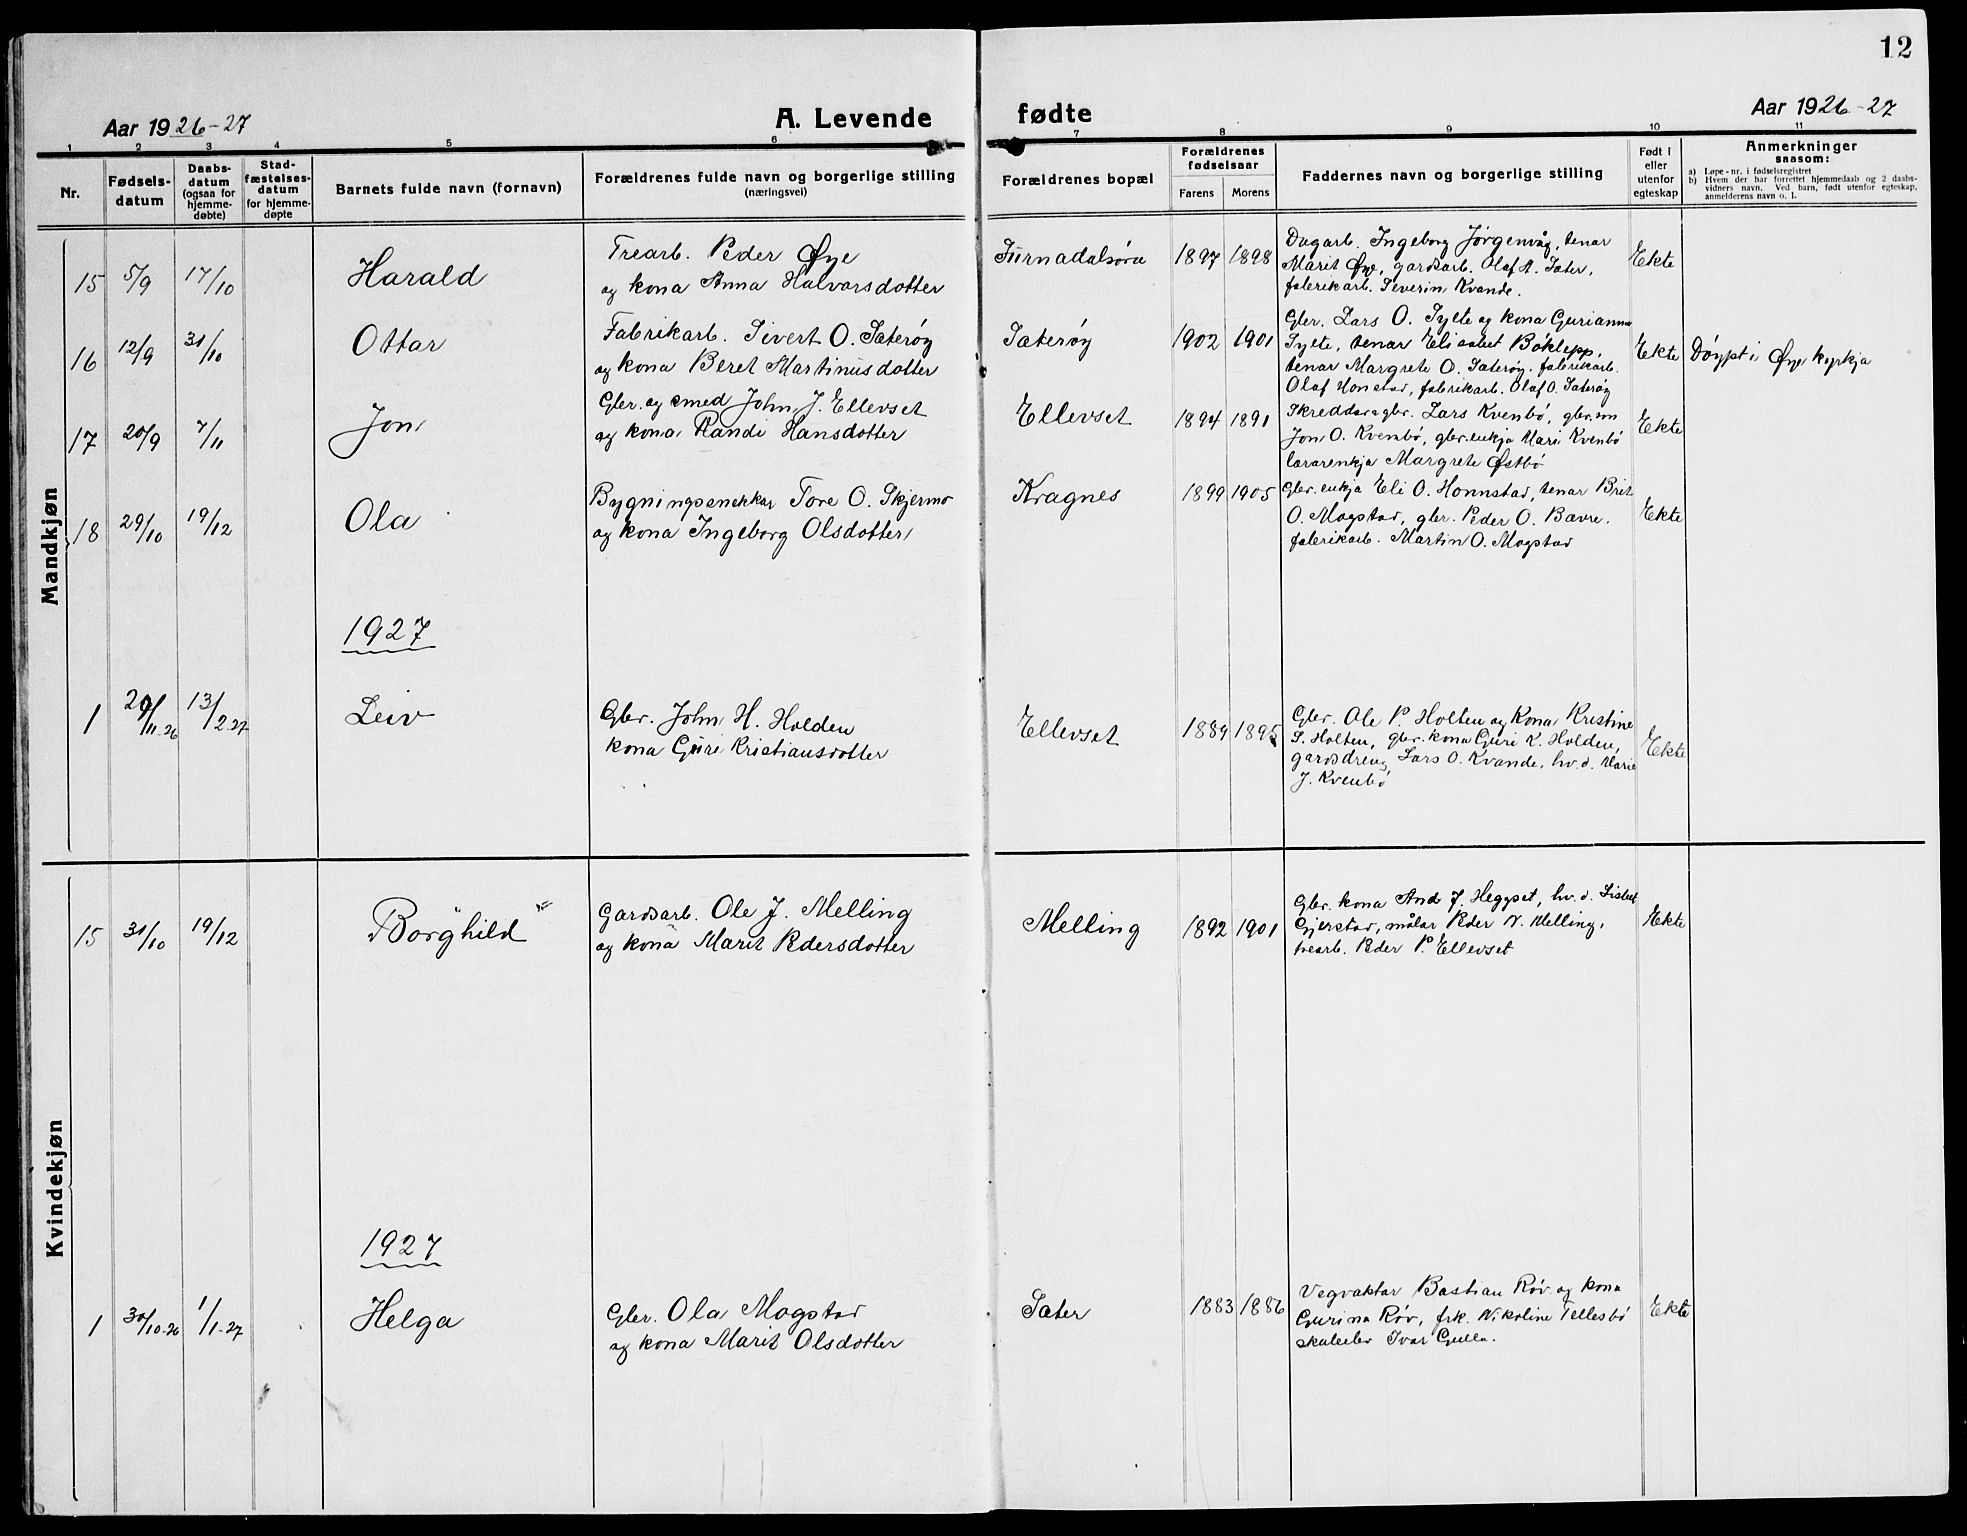 12
Aar 1926-27
A. Levende fødte
Aar 1926-27
1 2 3 4 5 6 7 8 9 10 11
Nr.
Fødsels-
datum
Daabs-
datum
(ogsaa for
hjemme-
døbte)
Stad-
fæstelses-
datum
for hjemme-
døpte
Barnets fulde navn (fornavn)
Forældrenes fulde navn og borgerlige stilling
(næringsvei)
Forældrenes bopæl
Forældrenes
fødselsaar
Farens Morens
Faddernes navn og borgerlige stilling
Født i
eller
utenfor
egteskap
Anmerkninger
saasom:
a) Løpe-nr. i fødselsregistret
b) Hvem der har forrettet hjemmedaab og 2 daabs-
vidners navn. Ved barn, født utenfor egteskap,
anmelderens navn o. l.
Mandkjøn
15 5/9 17/10 Harald
Trearb. Peder Øye
og kona Anna Halvorsdotter
Surnadalsøra 1897 1898
Dagarb. Ingeborg Jørgenvåg, tenar
Marit Øye, gardsarb. Olaf A. Sæter,
fabrikarb. Severin Kvande.
Ekte
16 12/9 31/10 Ottar
Fabrikarb. Sivert O. Sæterøy
og kona Beret Martinusdotter
Sæterøy 1902 1901
Gbr. Lars O. Sylte og kona Gurianna
Sylte, tenar Elisabet Böklepp,
tenar Margrete O. Sæterøy, fabrikarb.
Olaf Honstad, fabrikarb. Olaf O. Sæterøy
Ekte Döypt i Øye kyrkja
17 20/9 7/11 Jon
Gbr. og smed John J. Ellevset
og kona Randi Hansdotter
Ellevset 1894 1891
Skreddar gbr. Lars Kvenbö, gbr. son
Jon O. Kvenbö, gbr. enkja Mari Kvenbö
lærarenkja Margrete Østbö
Ekte
18 29/10 19/12 Ola
Bygningssnekkar Tore O. Skjermo
og kona Ingeborg Olsdotter
Kragnes 1899 1905
Gbr. enkja Eli O. Honnstad, tenar Brit
O. Mogstad, gbr. Peder O. Bævre.
fabrikarb. Martin O. Mogstad
Ekte
1927
1 29/11-26 13/2-27 Leiv
Gbr. John H. Holden
kona Guri Kristiansdotter
Ellevset 1889 1895
Gbr. Ole P. Holten og Kona Kristine
S. Holten, gbr. kona Guri K. Holden,
gardsdreng Lars O. Kvande, hv. d. Marie
J. Kvenbö
Ekte
Kvindekjøn
15 31/10 19/12 Borghild
Gardsarb. Ole J. Melling
og kona Marit Pedersdotter
Melling 1892 1901
Gbr. kona And J. Heggset, hv. d. Lisbet
Gjerstad, målar Peder N. Melling,
trearb. Peder P. Ellevset
Ekte
1927
1 30/10-26 1/1-27 Helga
Gbr. Ola Mogstad
og kona Marit Olsdotter
Sæter 1883 1886
Vegvaktar Bastian Røv og kona
Gurina Røv, frk. Nikoline Tellesbö
skuleelev Ivar Gulla.
Ekte